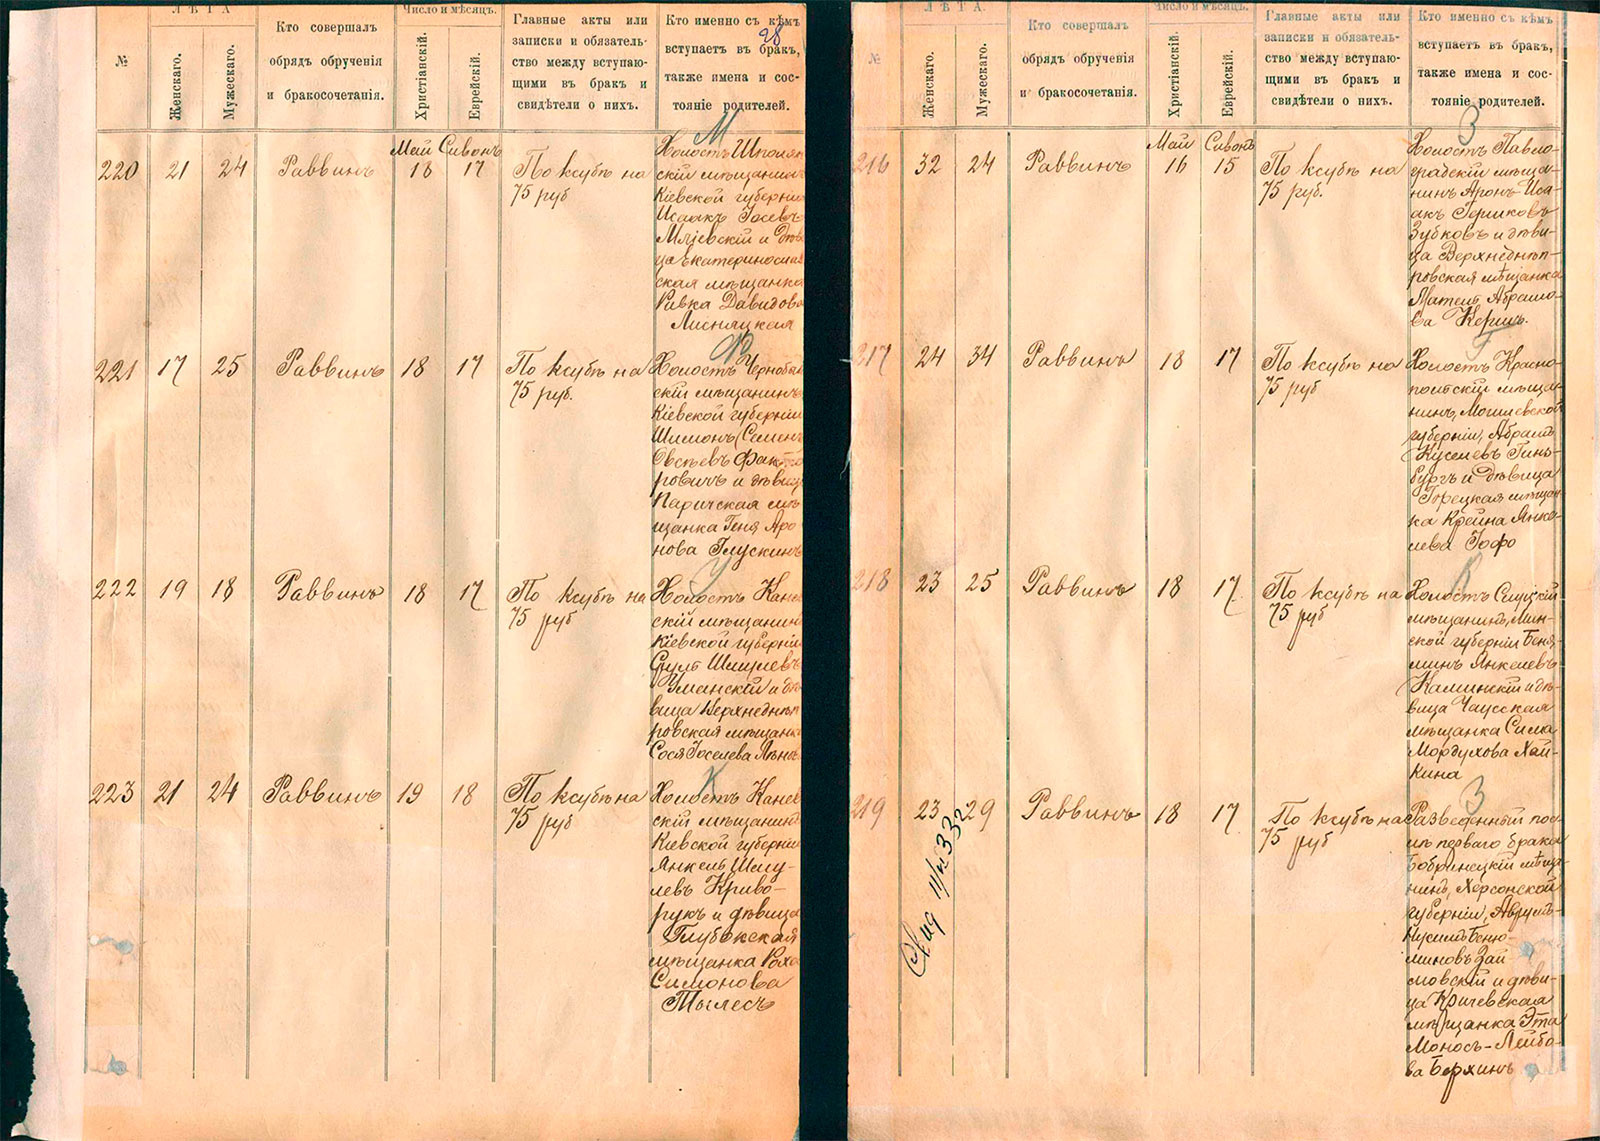 ЛѢТА
Число и мѣсяцъ.
№
Женскаго.
Мужескаго.
Кто совершалъ
обрядъ обрученія
и бракосочетанія.
Христіанскій.
Еврейскій.
Главные акты или
записки и обязатель-
ство между вступаю-
щими въ бракъ и
свидѣтели о нихъ.
Кто именно съ кѣмъ
28
вступаетъ въ бракъ,
также имена и сос-
тояніе родителей.
М
220 21 24 Раввинъ Май 18 Сивонъ 17
По ксубѣ на
75 руб
Холостъ Шполян
скій мѣщанинъ
Кіевской губерніи
Исаакъ Іосевъ
Мліевскій и дѣв
ца Екатеринослав
ская мѣщанка
Ривка Давидова
Лисняцкая
221 17 25 Раввинъ 18 17
По ксубѣ на
75 руб.
Холостъ Чернобы
скій мѣщанинъ
Кіевской губерніи
Шимонъ (Семен
Овсѣевъ Факто
ровичъ и дѣвица
Паричская мѣ
щанка Геня Аро
нова Глускинъ
У
222 19 18 Раввинъ 18 17
По ксубѣ на
75 руб
Холостъ Канев
скій мѣщанинъ
Кіевской губерніи
Сруль Шмулевъ
Уманскій и дѣ
вица Верхнеднѣп
ровская мѣщанка
Сося Іоселева
К
223 21 24 Раввинъ 19 18
По ксубѣ на
75 руб
Холостъ Канев
скій мѣщанинъ
Кіевской губерніи
Янкель Шму-
левъ Криво-
рукъ и дѣвица
Глубокская
мѣщанка Роха
Симонова
Тылесъ
ЛѢТА.
Число и мѣсяцъ.
№
Женскаго.
Мужескаго.
Кто совершалъ
обрядъ обрученія
и бракосочетанія.
Христіанскій.
Еврейскій.
Главные акты или
записки и обязатель-
ство между вступаю-
щими въ бракъ и
свидѣтели о нихъ.
Кто именно съ кѣмъ
вступаетъ въ бракъ,
также имена и сос-
тояніе родителей.
З
216 32 24 Раввинъ Май 16 Сивонъ 15
По ксубѣ на
75 руб.
Холостъ Павло-
градскій мѣща-
нинъ Аронъ-Иса-
акъ Гершковъ
Зубковъ и дѣви-
ца Верхнеднѣп-
ровская мѣщанка
Матель Абрамо-
ва Кершъ.
Г
217 24 34 Раввинъ 18 17
По ксубѣ на
75 руб
Холостъ Красно-
польскій мѣща-
нинъ, Могилевской
губерніи, Абрамъ
Куселевъ Гинз-
бургъ и дѣвица
Горецкая мѣщан-
ка Крейна Янке-
лева Гофо
К
218 23 25 Раввинъ 18 17
По ксубѣ на
75 руб
Холостъ Слуцкій
мѣщанинъ, Мин-
ской губерніи Беня-
минъ Янкелевъ
Каминскій и дѣ-
вица Чаусская
мѣщанка Сима
Мордухова Хай-
кина
З
219 23 29 Раввинъ 18 17
По ксубѣ на
75 руб
Разведенный пос-
лѣ перваго брака
Бобринецкій мѣща-
нинъ, Херсонской
губерніи, Аврумъ-
Нусимъ Беню-
миновъ Зай
мовскій и дѣви-
ца Кричевская
мѣщанка Эта
Моносъ-Лейбо-
ва Берхинъ